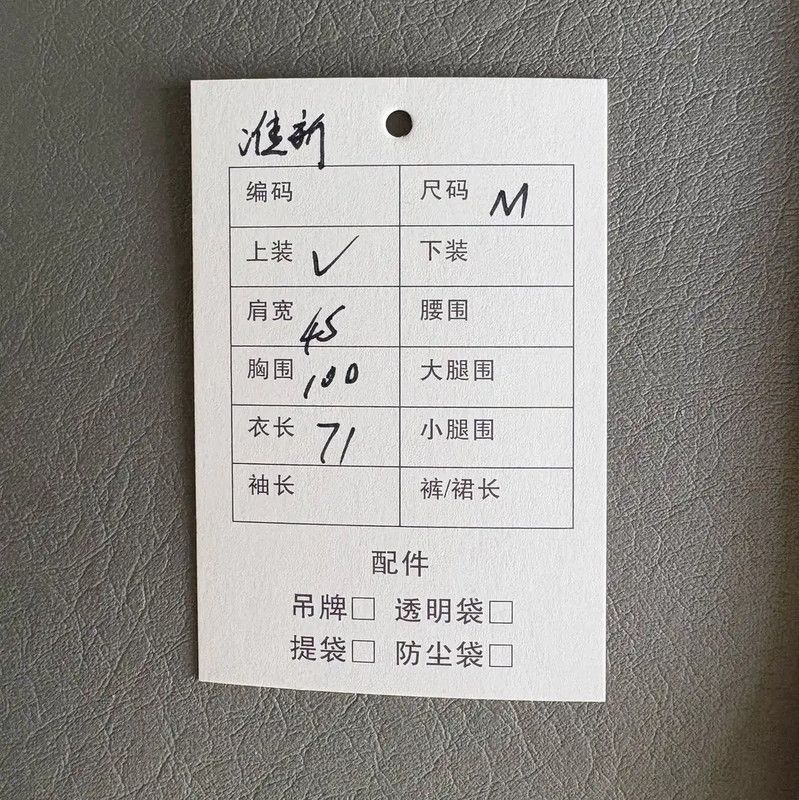 准新
编码 尺码 M
上装 ✓ 下装
肩宽 45 腰围
胸围 100 大腿围
衣长 71 小腿围
袖长 裤/裙长
配件
吊牌□ 透明袋□
提袋□ 防尘袋□